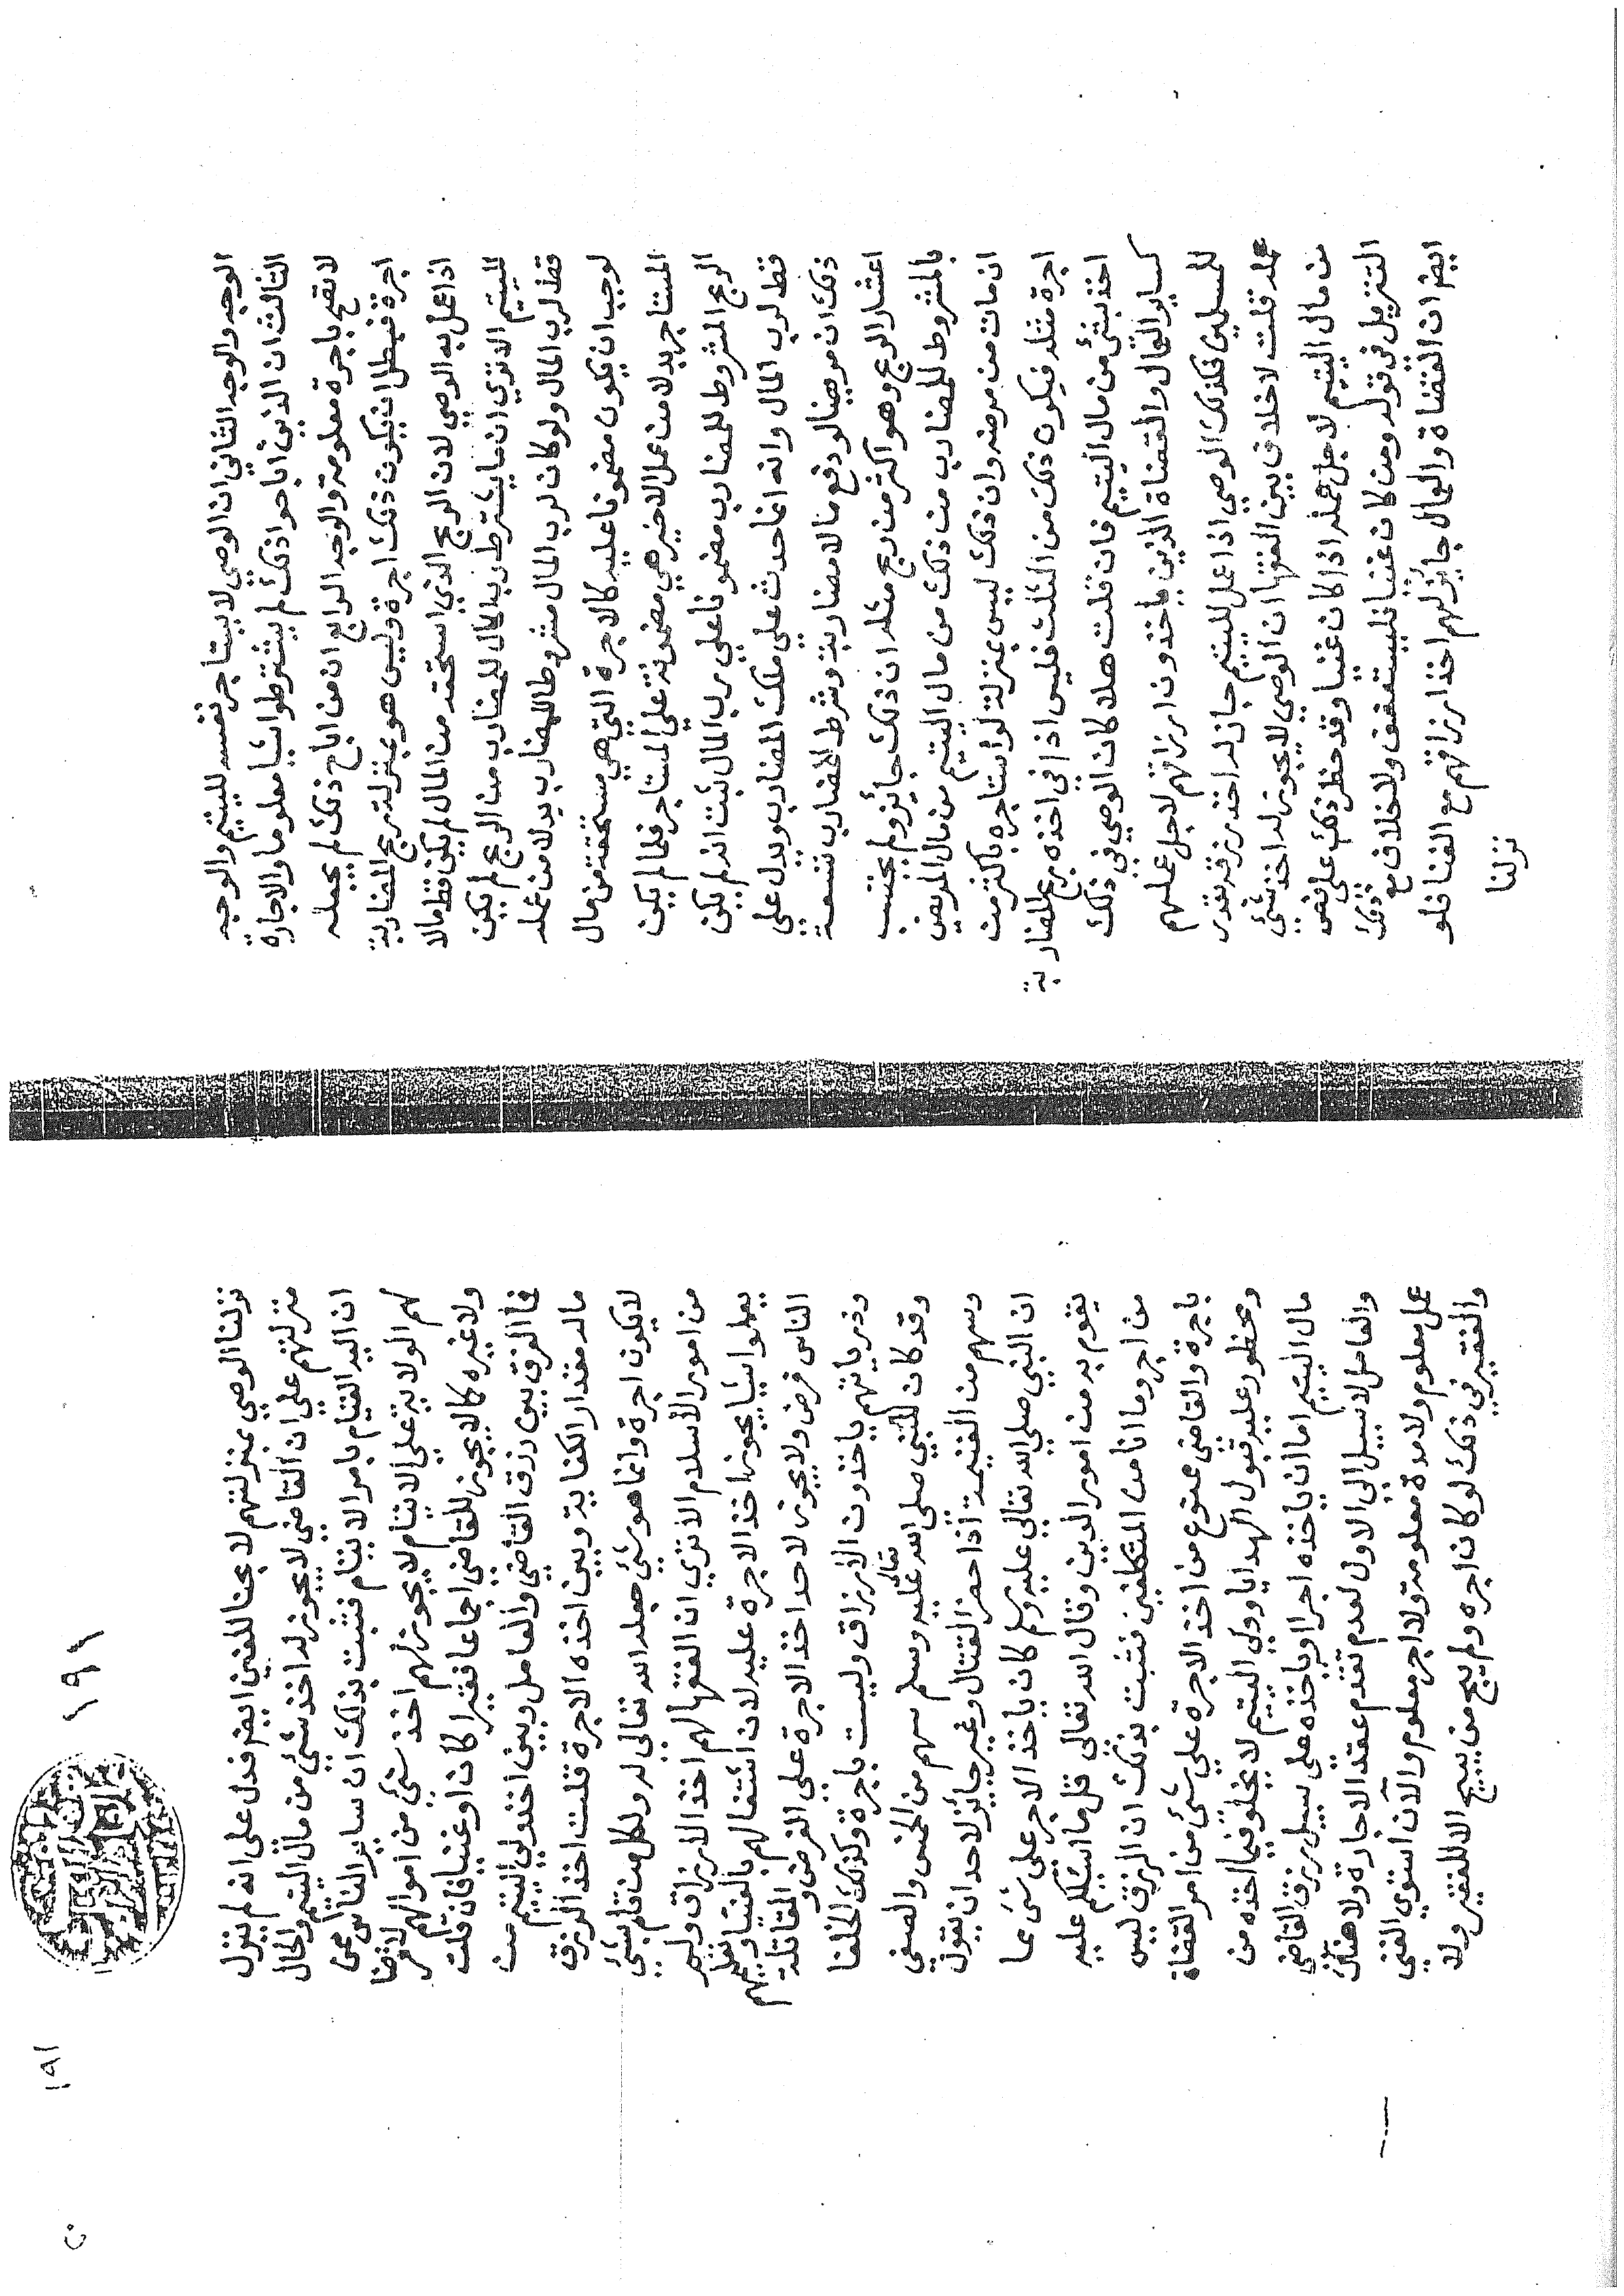 الوجه والوجه الثاني ان الوصي لا يستاجر نفسه لليتيم والوجه
الثالث ان الذين اباحوا ذلك لم يشترطوا شيا معلوما والاجارة
لا تصح باجرة معلومة والوجه الرابع ان من اباح ذلك لم يجعله
اجرة فبطل ان يكون ذلك اجرة وليس هو بمنزلة ربح المضاربة
اذا عمل به الوصي لان الربح الذي استحقه من المال لم يكن قط مالا
لليتيم الا تري ان ما يشترط رب المال للمضارب من الربح لم يكن
قط لرب المال ولو كان لرب المال مشروطا للمضارب بدلا من عمله
لوجب ان يكون مضمونا عليه كالاجرة التي هي مستحقة من مال
المستاجر بدلا من عمل الاخير هي مضمونة علي المستاجر فلما لم يكن
الربح المشروط للمضارب مضمونا علي رب المال ثبت انه لم يكن
قط لرب المال وانه انما حدث علي ملك المضارب ويدل علي
ذلك ان مريضا لو دفع مالا مضاربة وشرط للمضارب تسعة
اعشار الربح وهو اكثر من ربح مثله ان ذلك جائز ولم يحتسب
بالمشروط للمضارب من ذلك من مال اليتيم من مال المريض
ان مات من مرضه وان ذلك ليس بمنزلة لو استاجره باكثر من
اجرة مثله فيكون ذلك من الثلث فليس اذا في اخذه ربح المضاربة
اخذ بشئ من مال اليتيم فان قلت هلا كان الوصي في ذلك
كساير العمال والقضاة الذين ياخذون ارزاقهم لاجل عملهم
للمسلمين فكذلك الوصي اذا عمل لليتيم جاز له اخذ رزقه بقدر
عمله قلت لا خلاف بين الفقها ان الوصي لا يجوز له اخذ شئ
من مال اليتيم لاجل عمله اذا كان غنيا وقد حظر ذلك علي نص
التنزيل في قوله ومن كان غنيا فليستعفف ولا خلاف مع ذلك
ايضا ان القضاة والعمال جايز لهم اخذ ارزاقهم مع الغنا فلو
نزلنا
١٩١
نزلنا الوصي بمنزلتهم لابحنا للغني ايضا فدل علي انه لم ينزل
منزلتهم علي ان القاضي لا يجوز له اخذ شئ من مال اليتيم والحال
ان اليه القيام بامر الايتام فثبت بذلك ان ساير الناس ممن
لهم الولاية علي الايتام لا يجوز لهم اخذ شئ من اموالهم
ولا غيره كما لا يجوز للقاضي اجماعا فقيرا كان او غنيا فان قلت
فما الفرق بين رزق القاضي والعامل وبين اخذ ولي اليتيم من
ماله مقدار الكفاية وبين اخذه الاجرة قلت اخذ الرزق
لا يكون اجرة وانما هو شئ جعله الله تعالي له ولكل من قام بشئ
من امور الاسلام الا تري ان الفقها لهم اخذ الارزاق ولم
يعملوا شيا يجوز اخذ الاجرة عليه لان اشتغالهم بالفتيا وتفقيههم
الناس فرض ولا يجوز لاحد اخذ الاجرة علي الفرض والمقاتلة
وذرياتهم ياخذون الارزاق وليست باجرة وكذلك الخلفا
وقد كان للنبي صلى الله تعالى عليه وسلم سهم من الخمس والصفي
وسهم من الغنيمة اذا حضر القتال وغير جايز لاحد ان يقول
ان النبي صلي الله تعالي عليه وسلم كان ياخذ الاجر علي شئ مما
يقوم به من امور الدين وقال الله تعالي قل ما اسئلكم عليه
من اجر وما انا من المتكلفين فثبت بذلك ان الرزق ليس
باجرة والقاضي ممنوع من اخذ الاجرة علي شئ من امر القضاة
ومحظور عليه قبول الهدايا وولي اليتيم لا يخلو فيما اخذه من
مال اليتيم اما ان ياخذه اجرا او ياخذه علي سبيل رزق القاضي
والعامل لا سبيل الي الاول لعدم تقدم عقد الاجارة ولا هناك
عمل معلوم ولا مدة معلومة ولا اجر معلوم والآن استوي الغني
والفقير في ذلك لو كان اجره ولم يبح من يبيح الا للفقير ولا
١٩١